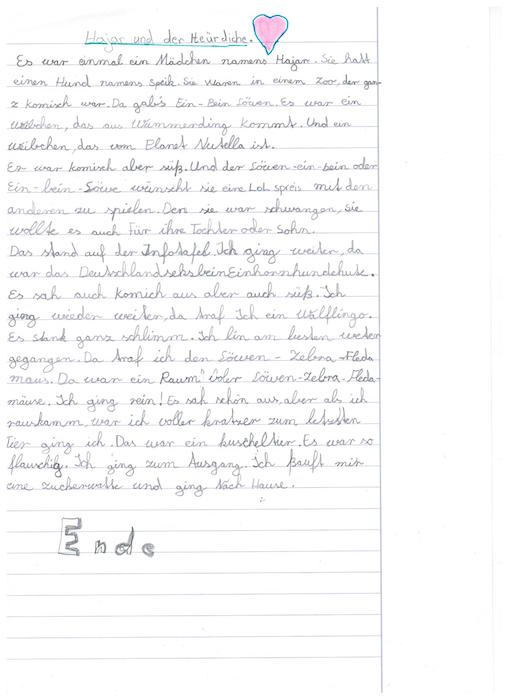 Hajar und der Heürdiche.
Es war einmal ein Mädchen namens Hajar. Sie hatt
einen Hund namens Speik. Sie waren in einem Zoo, der gan-
z komisch war. Da gab's Ein-Bein Löwen. Es war ein
weibchen, das aus Wummerding kommt. Und ein
weibchen, das vom Planet Nutella ist.
Er war komisch aber süß. Und der Löwen-ein-bein oder
Ein-bein-Löwe wünscht sie eine Lol spreis mit den
anderen zu spielen. Den sie war schwanger, sie
wollte es auch für ihre Tochter oder Sohn.
Das stand auf der Infotafel. Ich ging weiter, da
war das DeutschlandsechsbeinEinhornhundchute.
Es sah auch komich aus aber auch süß. Ich
ging wieder weiter, da traf Ich ein Wolflingo.
Es stank ganz schlimm. Ich bin am besten weiter
gegangen. Da traf ich den Löwen-Zebra-Fleda
maus. Da war ein Raum voler Löwen-Zebra-Fleda-
mäuse. Ich ging rein! Es sah schön aus, aber als ich
rauskamm, war ich voller kratzer zum letzten
Tier ging ich. Das war ein kuscheltier. Es war so
flauschig. Ich ging zum Ausgang. Ich kauft mir
eine zucherwatte und ging Nach Hause.
Ende